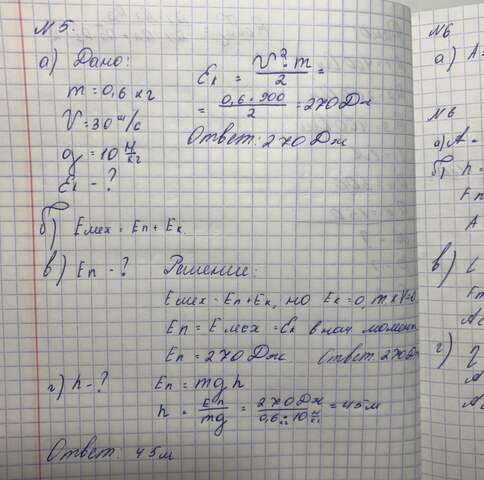 №5.
а) Дано:
m = 0,6 кг
V = 30 м/с
g = 10 Н/кг
Eк - ?
Eк = V²·m/2 =
= 0,6·900/2 = 270Дж
Ответ: 270 Дж
б) Eмех = Eп + Eк.
в) Eп - ? Решение:
Eмех = Eп + Eк, но Eк = 0, т.к V=0
Eп = Eмех = Eк в нач. момент
Eп = 270 Дж Ответ: 270Дж
г) h - ? Eп = mgh
h = Eп/mg = 270 Дж/0,6 кг·10 Н/кг = 45м
Ответ: 45м
№6
а) A =
№6
а) A =
б) h =
Fт
A
в) L
Fт
Aс
г) η
A
Aс